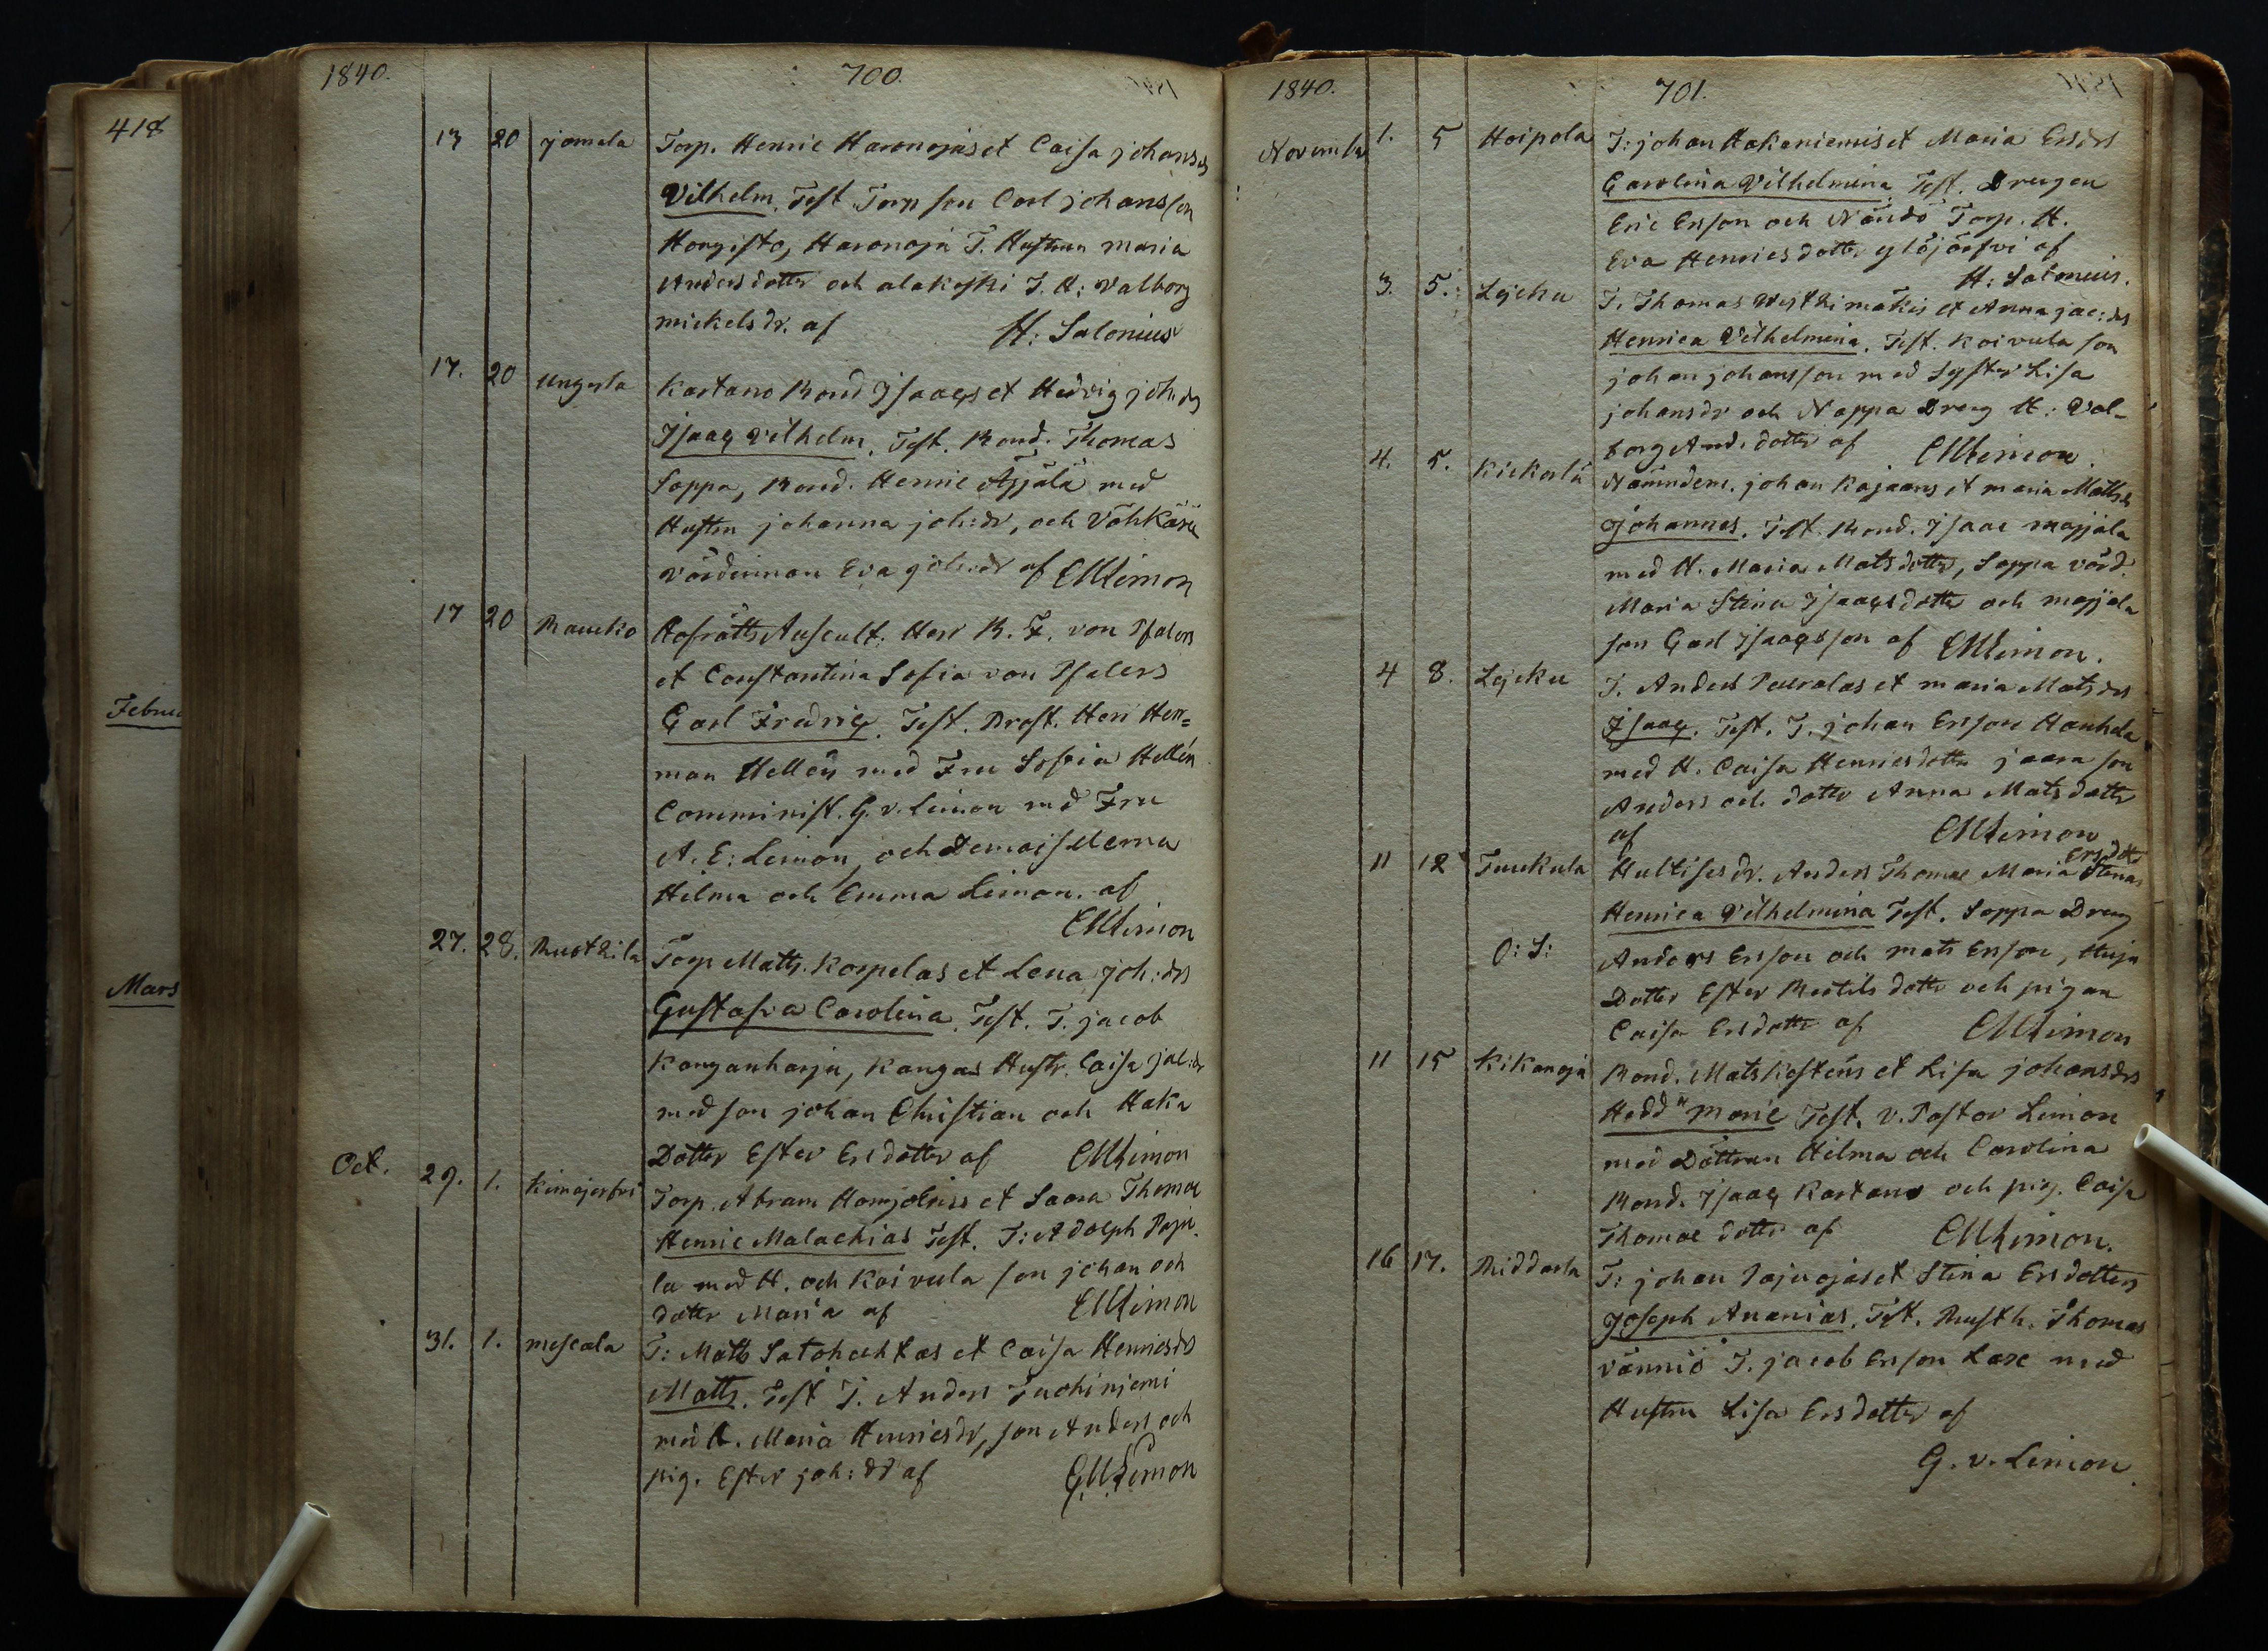 418
Febru
Mars
1840. 700.
13 20 jomala Torp. Henric Haronojas et Caisa johansds
Vilhelm, Test Torp son Carl johansson
Hongisto, Haronoja T. Hustrun maria
Andersdotter och alakoski T. H: Valborg
mickelsdr. af H: Salonius
17. 20 Ungerla Kartano Bond Isaacs et Hedvig joh:ds
Isaaq Vilhelm, Test. Bond. Thomas
Soppa, Bond. Henric Äijälä med
Hustru johanna joh:dr, och Vöhkäri
värdinnan Eva joh:dr af CMLimon
17 20 Raucko Hofrätts Auscult. Herr B. F. von Pfalers
et Constantina Sofia von Pfalers
Carl Fredriq. Test. Prost. Herr Her=
man Hellén med Fru Sofia Hellén
Comminist. G. v. Limon med Fru
A. E: Limon, och Demoisellerna
Hilma och Emma Limon. af
CMLimon
27. 28. Rusthila Torp Matts. Korpelas et Lena joh:ds
Gustafva Carolina, Test. T. jacob
Kanganharju, Kangas Hustr. Caisa jac:dr
med son johan Christian och Haka
Dotter Ester Ersdotter af CMLimon
Oct. 29. 1. Kimojerfvi Torp. Abram Honjolas et Saara Thomæ
Henric Malachias Test. T: Adolph Paju
la med H. och Koivula son johan och
dotter Maria af CMLimon
31. 1. mescala T: Matts Satohaktas et Caisa Henricsds
Matts. Test T. Anders Tuohiniemi
med H. Maria Henricsdr, son Anders och
pig. Ester joh:dr af GMLimon
1840. 701.
November 1. 5 Hoipola T: johan Hakaniemis et Maria Ersdrs
Carolina Vilhelmina, Test. Drengen
Eric Erson och Nändö Torp. H.
Eva Henricsdotter ylöjärfvi af
H: Salonius.
3. 5. Lejcku T. Thomas Mystkimäkis et Anna jac:ds
Henrica Vilhelmina. Test. Koivula son
johan johansson med Syster Lisa
johansdr och Nappa Dreng H: Val-
borg And. dotter af CMLimon.
4. 5. Kiekarlä Nämndem. johan Kajaans et maria Mattsds
Johannes. Test. Bond. Isaac majjala
med H. Maria Matsdotter, Soppa värd.
Maria Stina Isaaqsdotter och majjala
son Carl Isaaqsson af CMLimon.
4 8. Lejcku T. Anders Paavolas et maria Matsds
Isaaq. Test. T. johan Erson Hanhela
med H. Caisa Henricsdotter jaara son
Anders och dotter Anna Matsdotter
af CMLimon
11 12 Tuukula Hultisesdr. Anders Thomæ Maria Stinas Ersdotter
Henrica Vilhelmina Test. Soppa Dreng
O: S: Anders Erson och mats Erson, Huja
Dotter Ester Bertilsdotter och pigan
Caisa Ersdotter af CMLimon
11 15 Kikanoja Bond. Mats Kosténs et Lisa johansdrs
Hedda Marie Test. v. Pastor Limon
med Döttrar Hilma och Carolina
Bond. Isaaq Kartano och pig. Caisa
Thomæ dotter af CMLimon.
16 17. Riddarla T: johan Pajuojas et Stina Ersdotters
Joseph Ananias, Test. Rusth. Thomas
Vännio T. jacob Erson Lare med
Hustru Lisa Ersdotter af
G. v. Limon